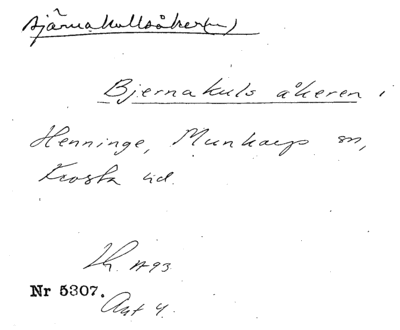 Bjärnakullsåker(n)
Bjernakuls åkeren i
Henninge, Munkarp sn,
Frosta hd.
Lh. A 93
Nr 5307.
Ant 4.